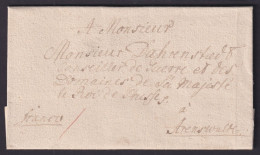 A Monsieur
Monsieur Dahrenstadt
Conseiller de Guerre et des
Domaines de Sa Majesté
le Roi de Prusse
à
franco Arenswalde